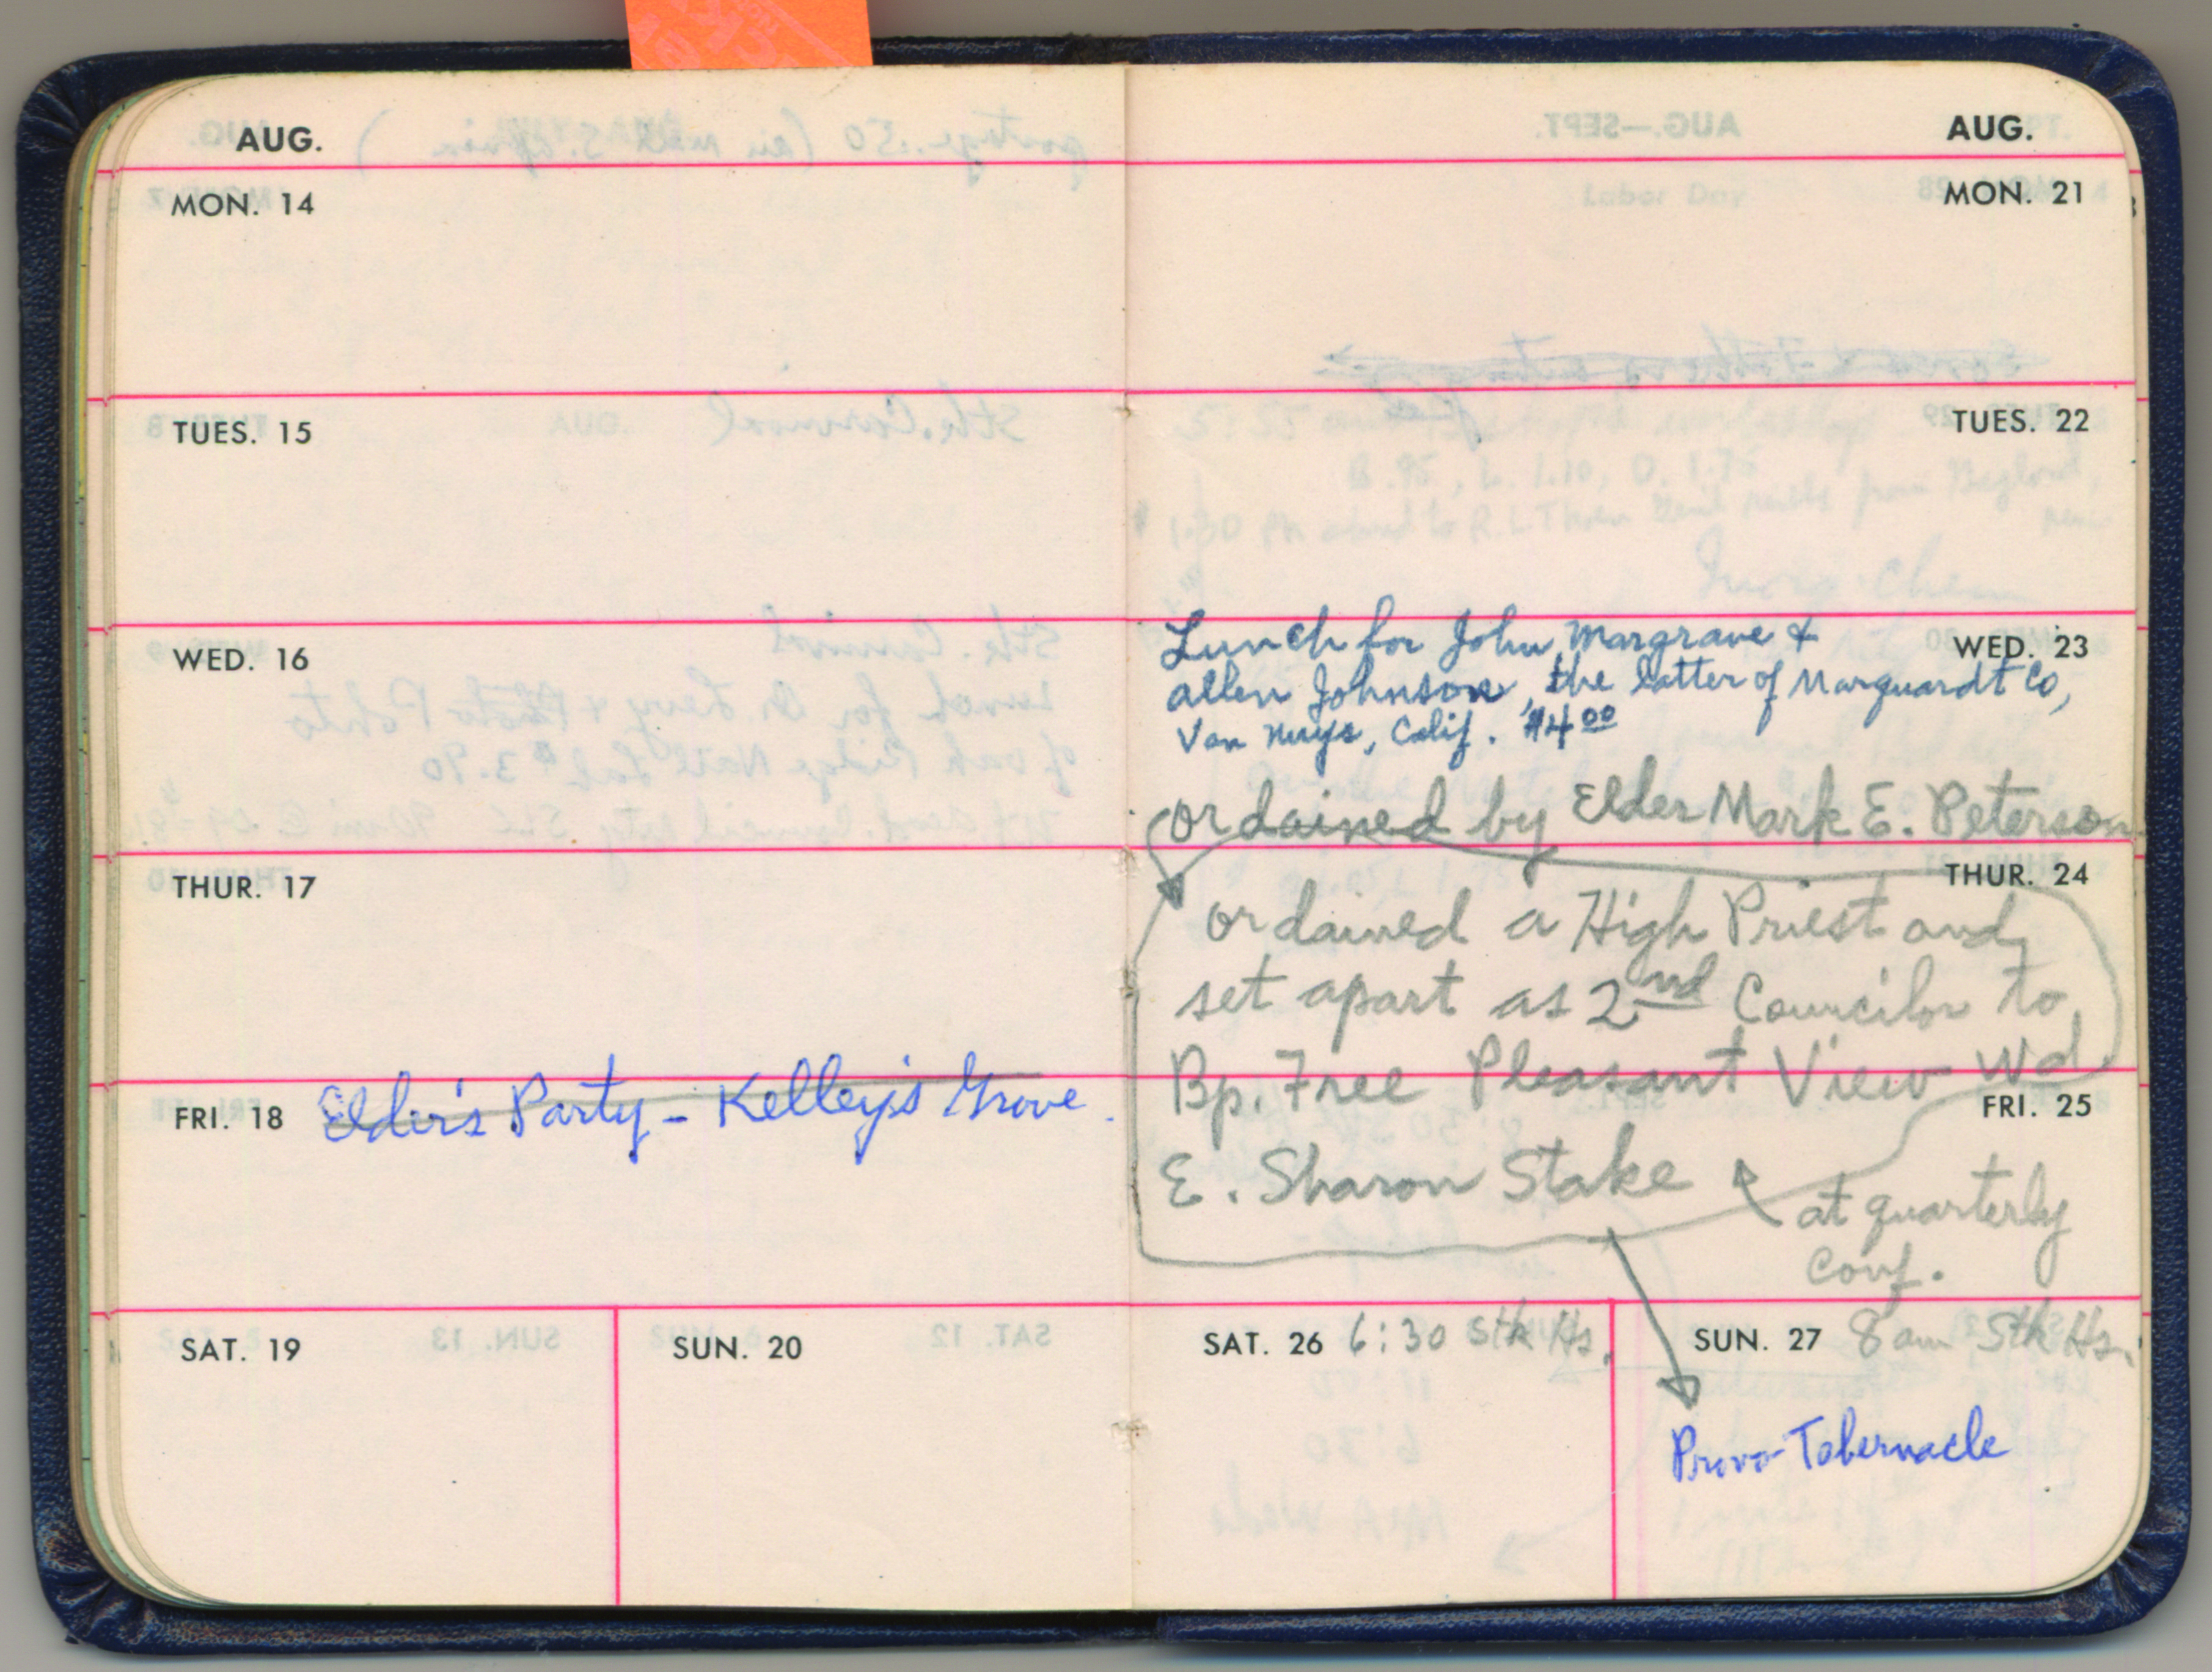 AUG.
MON. 14
TUES. 15
WED. 16
THUR. 17
FRI. 18 Elder's Party - Kelley's Grove.
SAT. 19
SUN. 20
AUG.
MON. 21
TUES. 22
WED. 23
Lunch for John Margrave &
Allen Johnson, the latter of Marquardt Co,
Van Nuys, Calif. $4.00
ordained by Elder Mark E. Peterson
THUR. 24
ordained a High Priest and
set apart as 2nd Councilor to
Bp. Free Pleasant View Wd
FRI. 25
E. Sharon Stake
at quarterly
Conf.
SAT. 26 6:30 Stk Hs.
SUN. 27 8 am Stk Hs.
Provo Tabernacle